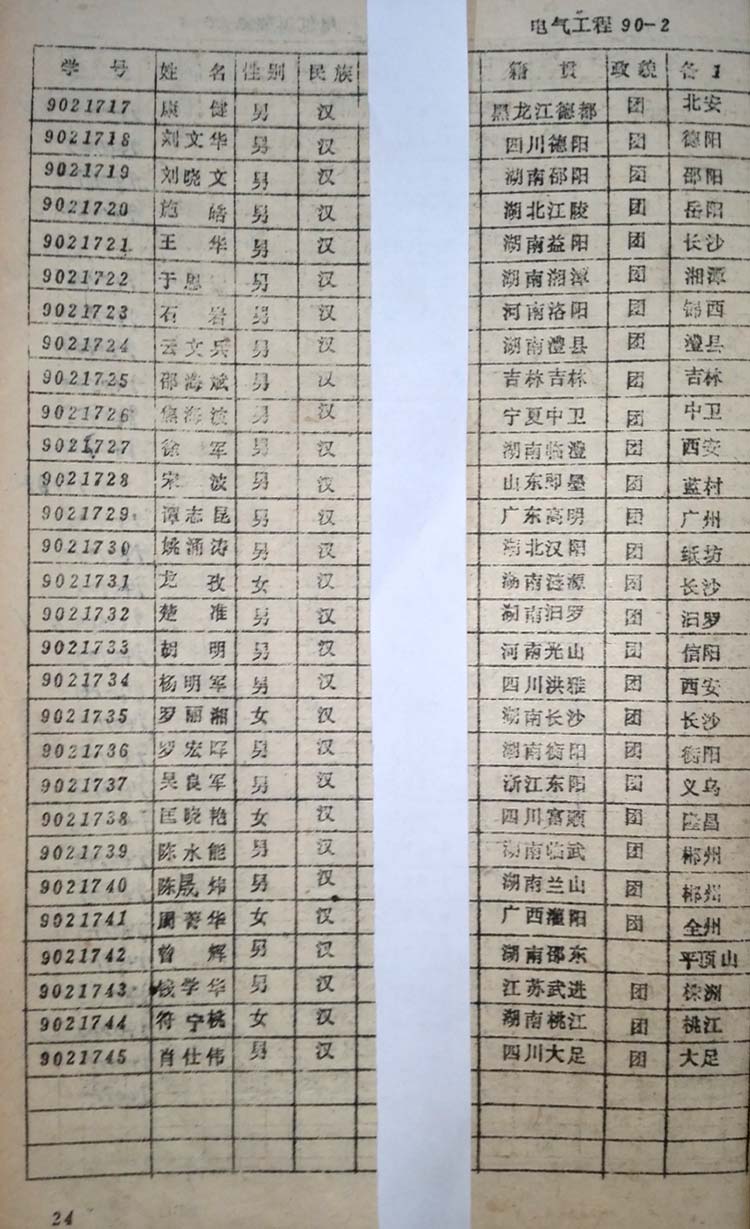 电气工程90-2
学号 姓名 性别 民族 籍贯 政貌 备
9021717 康健 男 汉 黑龙江德都 团 北安
9021718 刘文华 男 汉 四川德阳 团 德阳
9021719 刘晓文 男 汉 湖南邵阳 团 邵阳
9021720 施皓 男 汉 湖北江陵 团 岳阳
9021721 王华 男 汉 湖南益阳 团 长沙
9021722 于恩 男 汉 湖南湘潭 团 湘潭
9021723 石岩 男 汉 河南洛阳 团 锦西
9021724 云文兵 男 汉 湖南澧县 团 澧县
9021725 邵海斌 男 汉 吉林吉林 团 吉林
9021726 焦海波 男 汉 宁夏中卫 团 中卫
9021727 徐军 男 汉 湖南临澧 团 西安
9021728 宋波 男 汉 山东即墨 团 蓝村
9021729 谭志昆 男 汉 广东高明 团 广州
9021730 姚涌涛 男 汉 湖北汉阳 团 纸坊
9021731 龙孜 女 汉 湖南涟源 团 长沙
9021732 楚准 男 汉 湖南汨罗 团 汨罗
9021733 胡明 男 汉 河南光山 团 信阳
9021734 杨明军 男 汉 四川洪雅 团 西安
9021735 罗丽湘 女 汉 湖南长沙 团 长沙
9021736 罗宏晖 男 汉 湖南衡阳 团 衡阳
9021737 吴良军 男 汉 浙江东阳 团 义乌
9021738 匡晓艳 女 汉 四川富顺 团 隆昌
9021739 陈永能 男 汉 湖南临武 团 郴州
9021740 陈晟炜 男 汉 湖南兰山 团 郴州
9021741 周菁华 女 汉 广西灌阳 团 全州
9021742 曾辉 男 汉 湖南邵东 平顶山
9021743 钱学华 男 汉 江苏武进 团 株洲
9021744 符宁桃 女 汉 湖南桃江 团 桃江
9021745 肖仕伟 男 汉 四川大足 团 大足
24